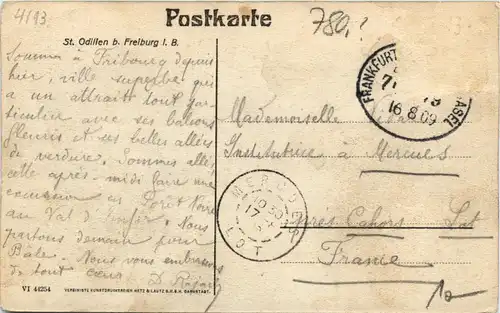 4193
Postkarte
780.?
St. Odilien b. Freiburg i. B.
Sommes à Fribourg depuis
hier, ville superbe qui
a un attrait tout par-
ticulier avec ses balcons
fleuris et ses belles allées
de verdure. Sommes allés
cette après-midi faire une
excursion en Forêt Noire
au Val d'Enfer. Nous
partons demain pour
Bâle. Nous vous embrassons
de tout cœur
VI 44254
VEREINIGTE KUNSTDRUCKEREIEN METZ & LAUTZ G.M.B.H. DARMSTADT.
FRANKFURT
BASEL
16.8.09
Mademoiselle
Institutrice à Mercuès
MERCUÈS
17
LOT
près Cahors Lot
France